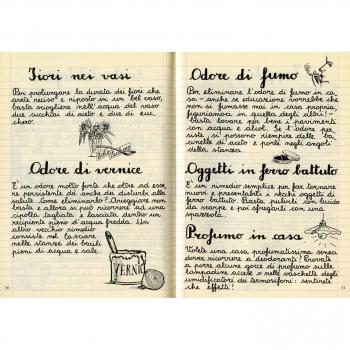 Fiori nei vasi
Per prolungare la durata dei fiori che
avete reciso e riposto in un bel vaso,
basta sciogliere nell'acqua del vaso
due cucchiai di aceto e due di zuc_
chero.
Odore di vernice
È un odore molto forte che oltre ad esse_
re persistente dà anche dei disturbi alla
salute. Come eliminarlo? Arieggiare non
basta e allora si può ricorrere ad una
cipolla tagliata e lasciata dentro un
recipiente pieno d'acqua fredda. Un
altro vecchio rimedio
consiste nel lasciare
nelle stanze dei bacili
pieni di acqua e sale.
VERNI
30
Odore di fumo
Per eliminare l'odore di fumo in ca_
sa - anche se educazione vorrebbe che
non si fumasse mai in casa propria,
figuriamoci in quella degli altri! -
basta lavare per bene i pavimenti
con acqua e alcol. Se l'odore per_
siste si possono riempire delle ba_
cinelle di aceto e porle negli angoli
della stanza.
Oggetti in ferro battuto
È un rimedio semplice per far tornare
nuovi e presentabili i vecchi oggetti in
ferro battuto. Basta pulirli con lucido
da scarpe e poi sfregarli con una
spazzola.
Profumo in casa
Volete una casa profumatissima senza
dover ricorrere a deodoranti? Provate
a porre alcune gocce di profumo sulle
lampadine accese o nelle vaschette degli
umidificatori dei termosifoni: sentirete
che effetti!
31